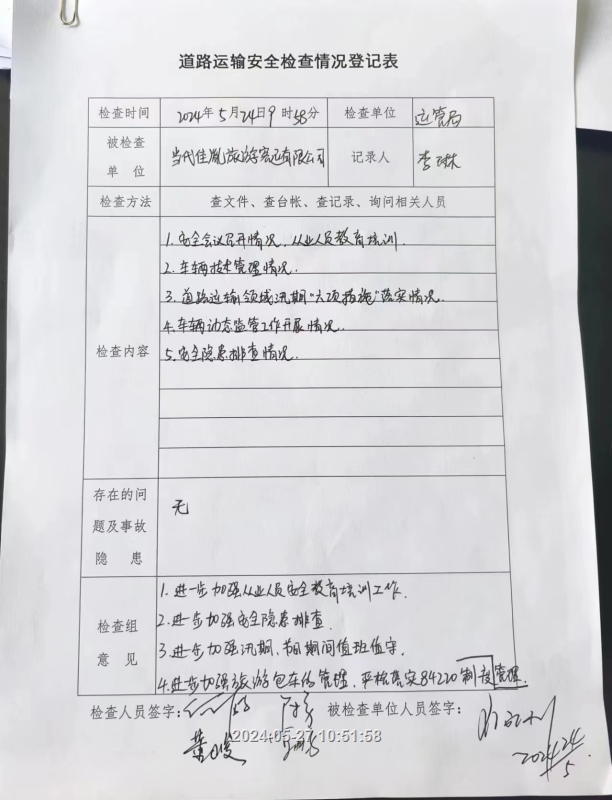 道路运输安全检查情况登记表
检查时间 2024年5月24日9时58分 检查单位 运管局
被检查单位 当代佳胤旅游客运有限公司 记录人 李琳
检查方法 查文件、查台帐、查记录、询问相关人员
检查内容
1.安全会议召开情况、从业人员教育培训.
2.车辆技术管理情况.
3.道路运输领域汛期"六项措施"落实情况.
4.车辆动态监管工作开展情况.
5.安全隐患排查情况.
存在的问题及事故隐患 无
检查组意见
1.进一步加强从业人员安全教育培训工作.
2.进一步加强安全隐患排查.
3.进一步加强汛期、节日期间值班值守.
4.进一步加强旅游包车的管理、严格落实84220制度管理.
检查人员签字: 被检查单位人员签字:
2024-05-27 10:51:58
2024 24/5